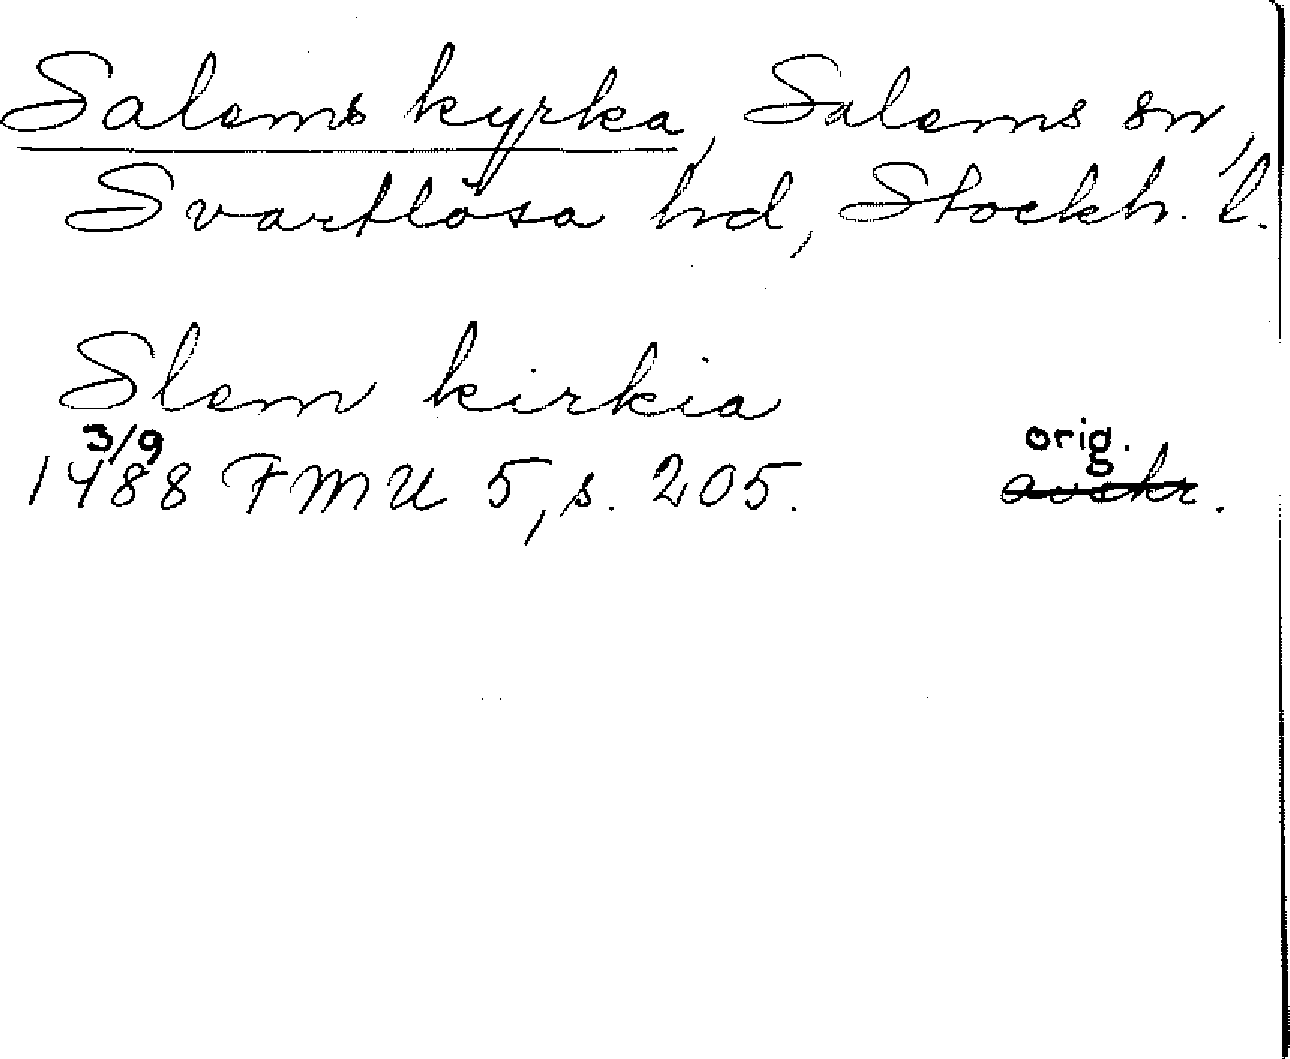 Salems kyrka, Salems sn,
Svartlösa hd, Stockh. l.
Slem kirkia
3/9 orig.
1488 FMU 5, s. 205. avskr.